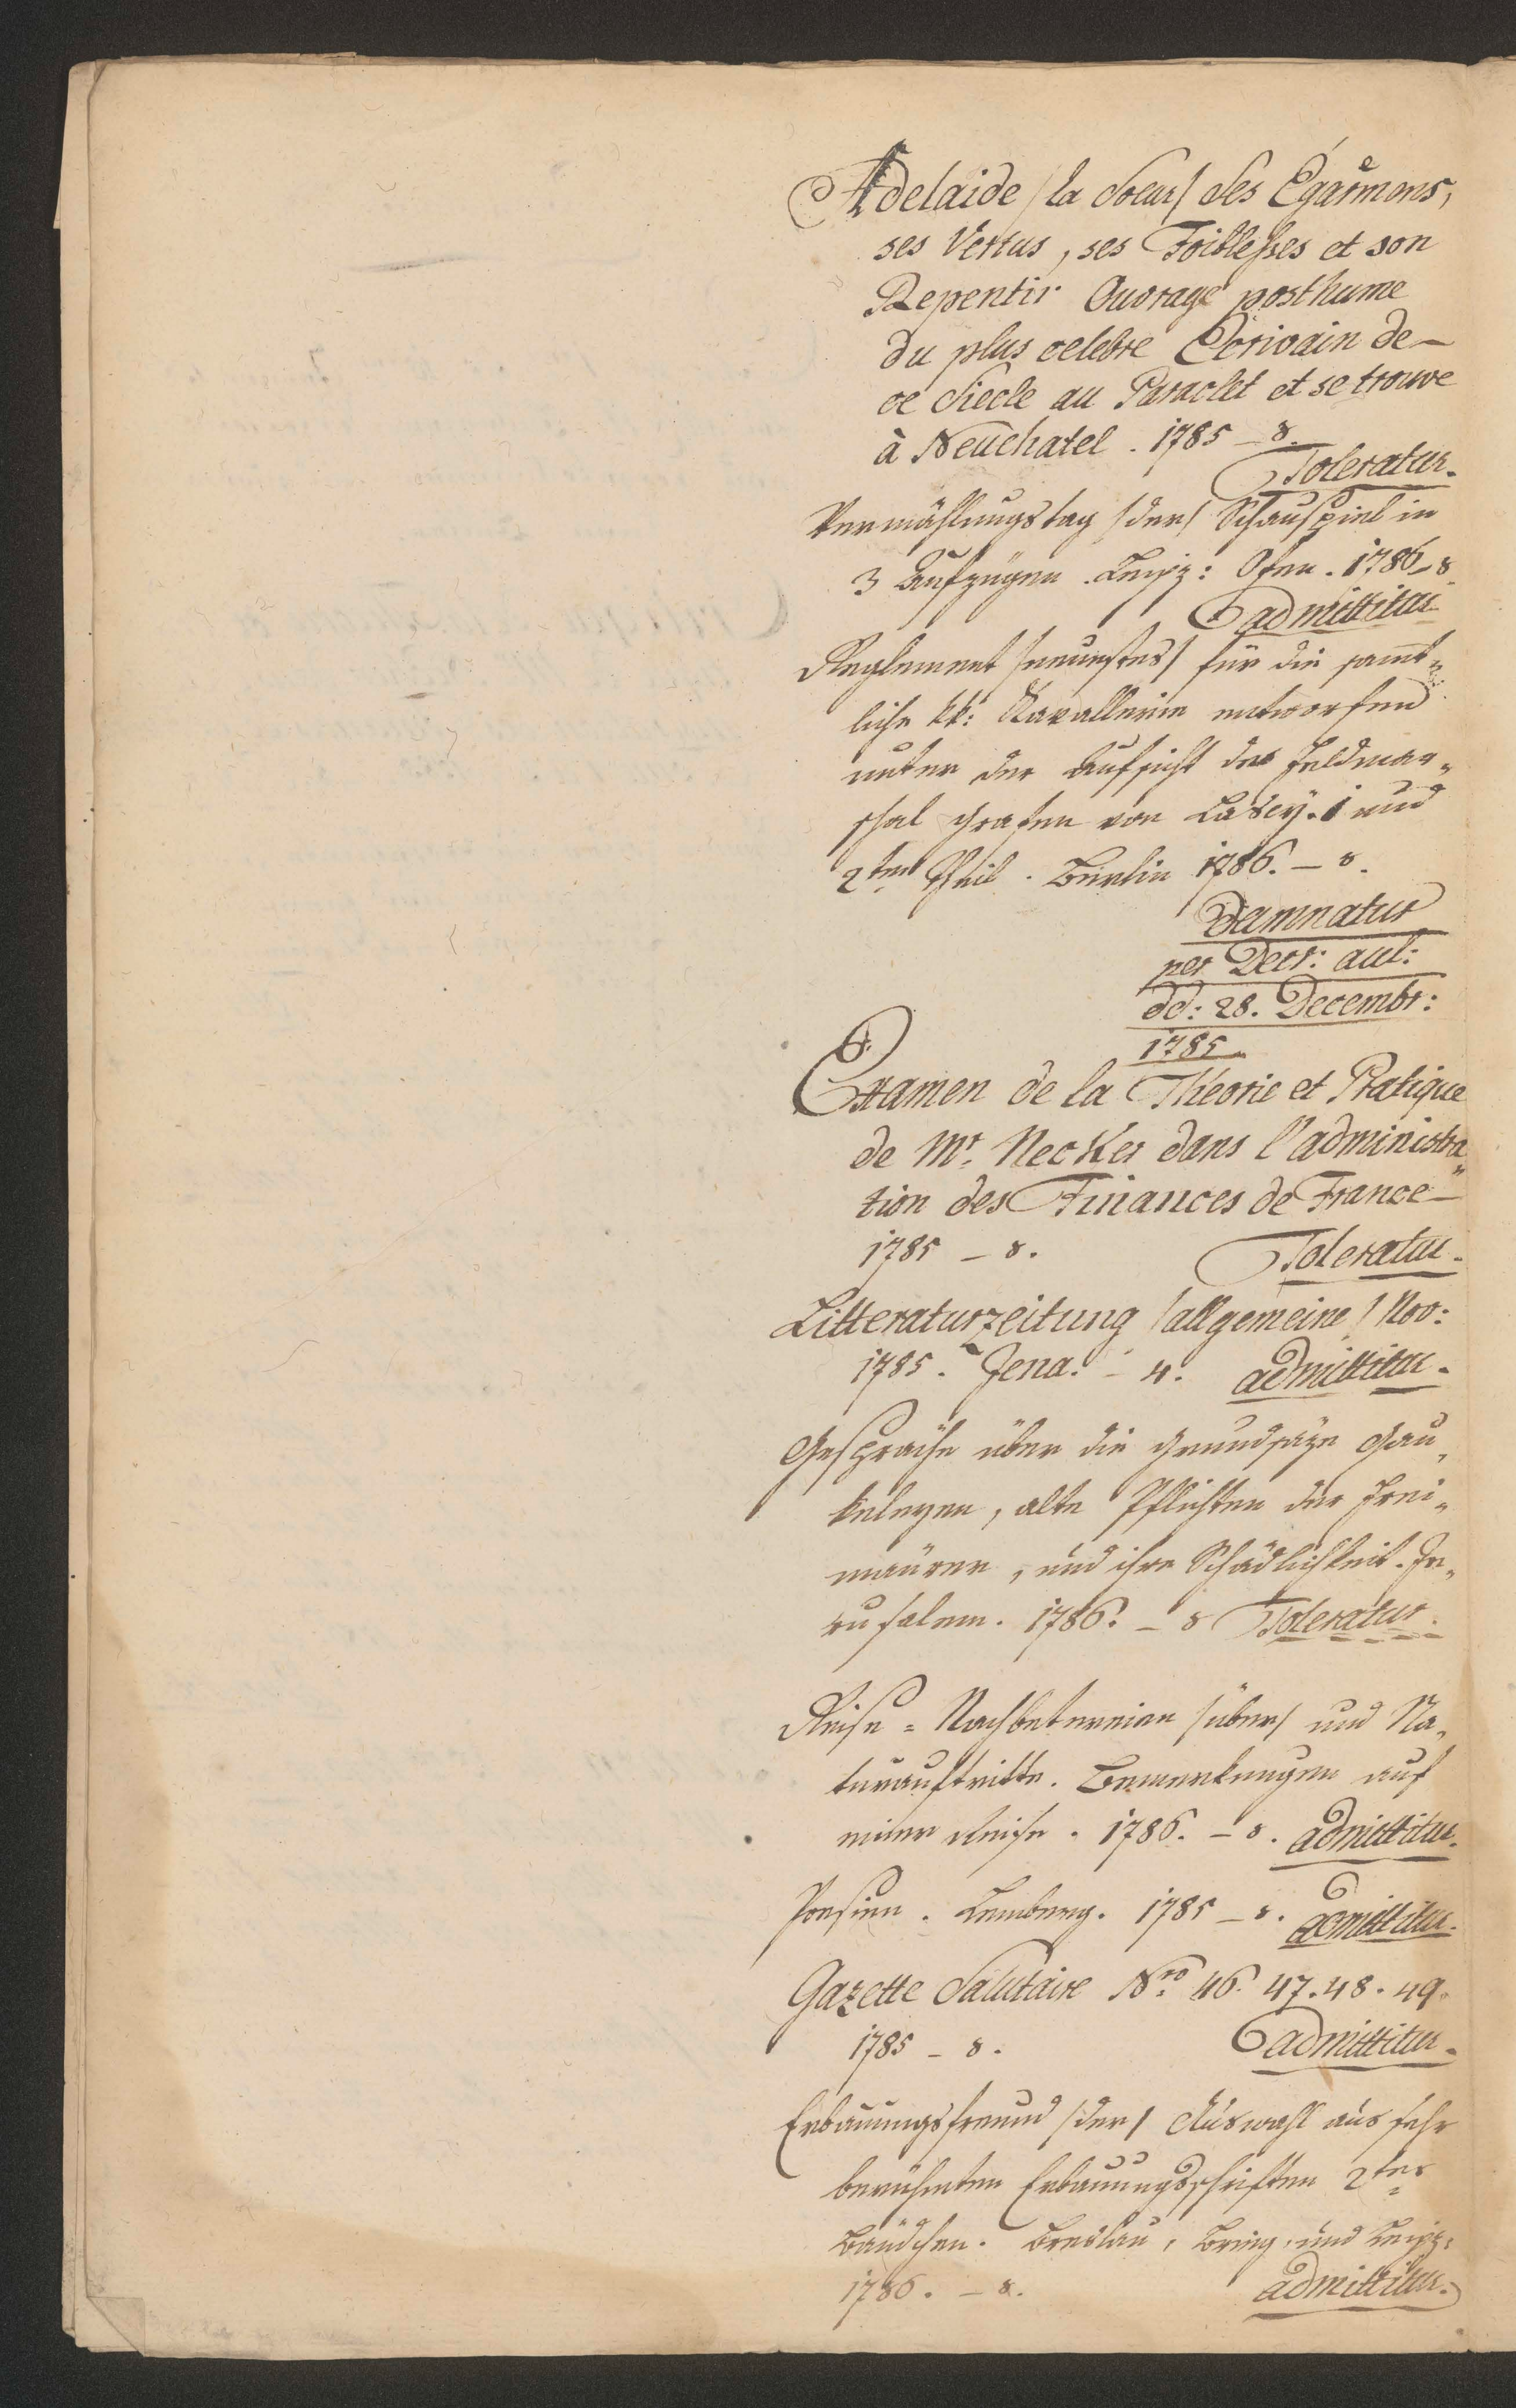 Adelaide /la Soeur/ Ses Égaremens,
ses Vertus, ses Foiblesses et son
Repentir Ouvrage posthume
du plus celebre Ecrivain de
ce Siecle au Paraclet et se trouve
à Neuchatel. 1785 – 8.
Toleratur.
Vermählungstag /der/ Schauspiel in
3 Aufzügen. Leipz: Ofen. 1786 – 8.
admittitur
Reglement /neuestes/ für die samt-
liche kk: Kavallerie entworfen
unter der Aufsicht des Feldmar-
shal Grafen von Lascy. 1 und
2ten Theil. Berlin 1786. – 8.
Damnatur
per Decr: aul:
dd: 28. Decembr:
1785
Examen de la Théorie et Pratique
de Mr. Necker dans l'administra-
tion des Finances de France –
1785 – 8. Toleratur.
Litteraturzeitung /allgemeine/ Nov:
1785. Jena. – 4. admittitur.
Gespräche über die Grundsäze Gau-
keleyen, alte Pflichten der Frei-
maürer, und ihre Schädlichkeit. Je-
rusalem. 1786. – 8 Toleratur.
Reise = Nachbetereien /über/ und Na-
turauftritte. Bemerkungen auf
einer Reise. 1786. – 8. admittitur.
Poesien. Lemberg. 1785 – 8. admittitur.
Gazette Salutaire Nro 46. 47. 48. 49.
1785 – 8. admittitur.
Erbauungsfreund /der/ Auswahl aus sehr
berühmten Erbauungsschriften 2tes
Bändchen. Breslau, Brieg, und Leipz:
1786. – 8. admittitur.